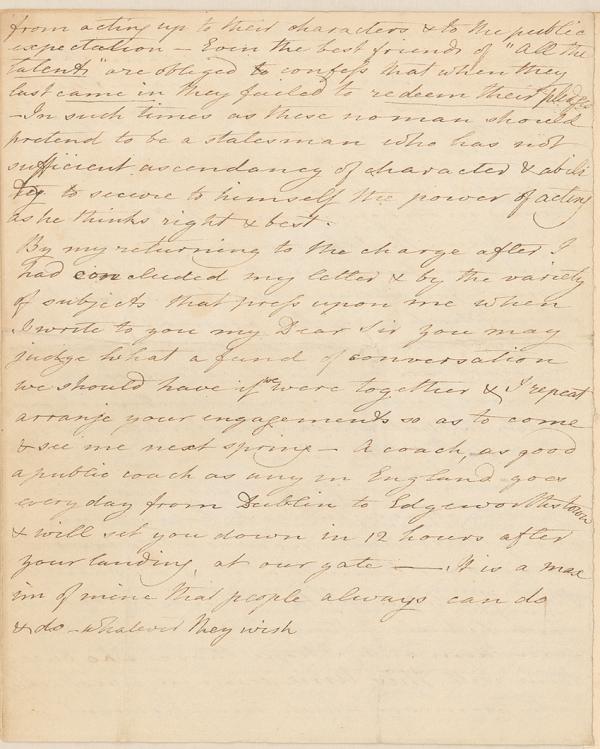 from acting up to their characters & to the public
expectation — Even the best friends of "All the
talents" are obliged to confess that when they
last came in they failed to redeem their pledges
— In such times as these no man should
pretend to be a statesman who has not
sufficient ascendancy of character & abili
ty to secure to himself the power of acting
as he thinks right & best.
By my returning to the charge after I
had concluded my letter & by the variety
of subjects that press upon me when
I write to you my Dear Sir you may
judge what a fund of conversation
we should have if we were together & I repeat
arrange your engagements so as to come
& see me next spring — A coach, as good
a public coach as any in England goes
every day from Dublin to Edgeworthstown
& will set you down in 12 hours after
your landing, at our gate —. It is a max
im of mine that people always can do
& do - whatever they wish